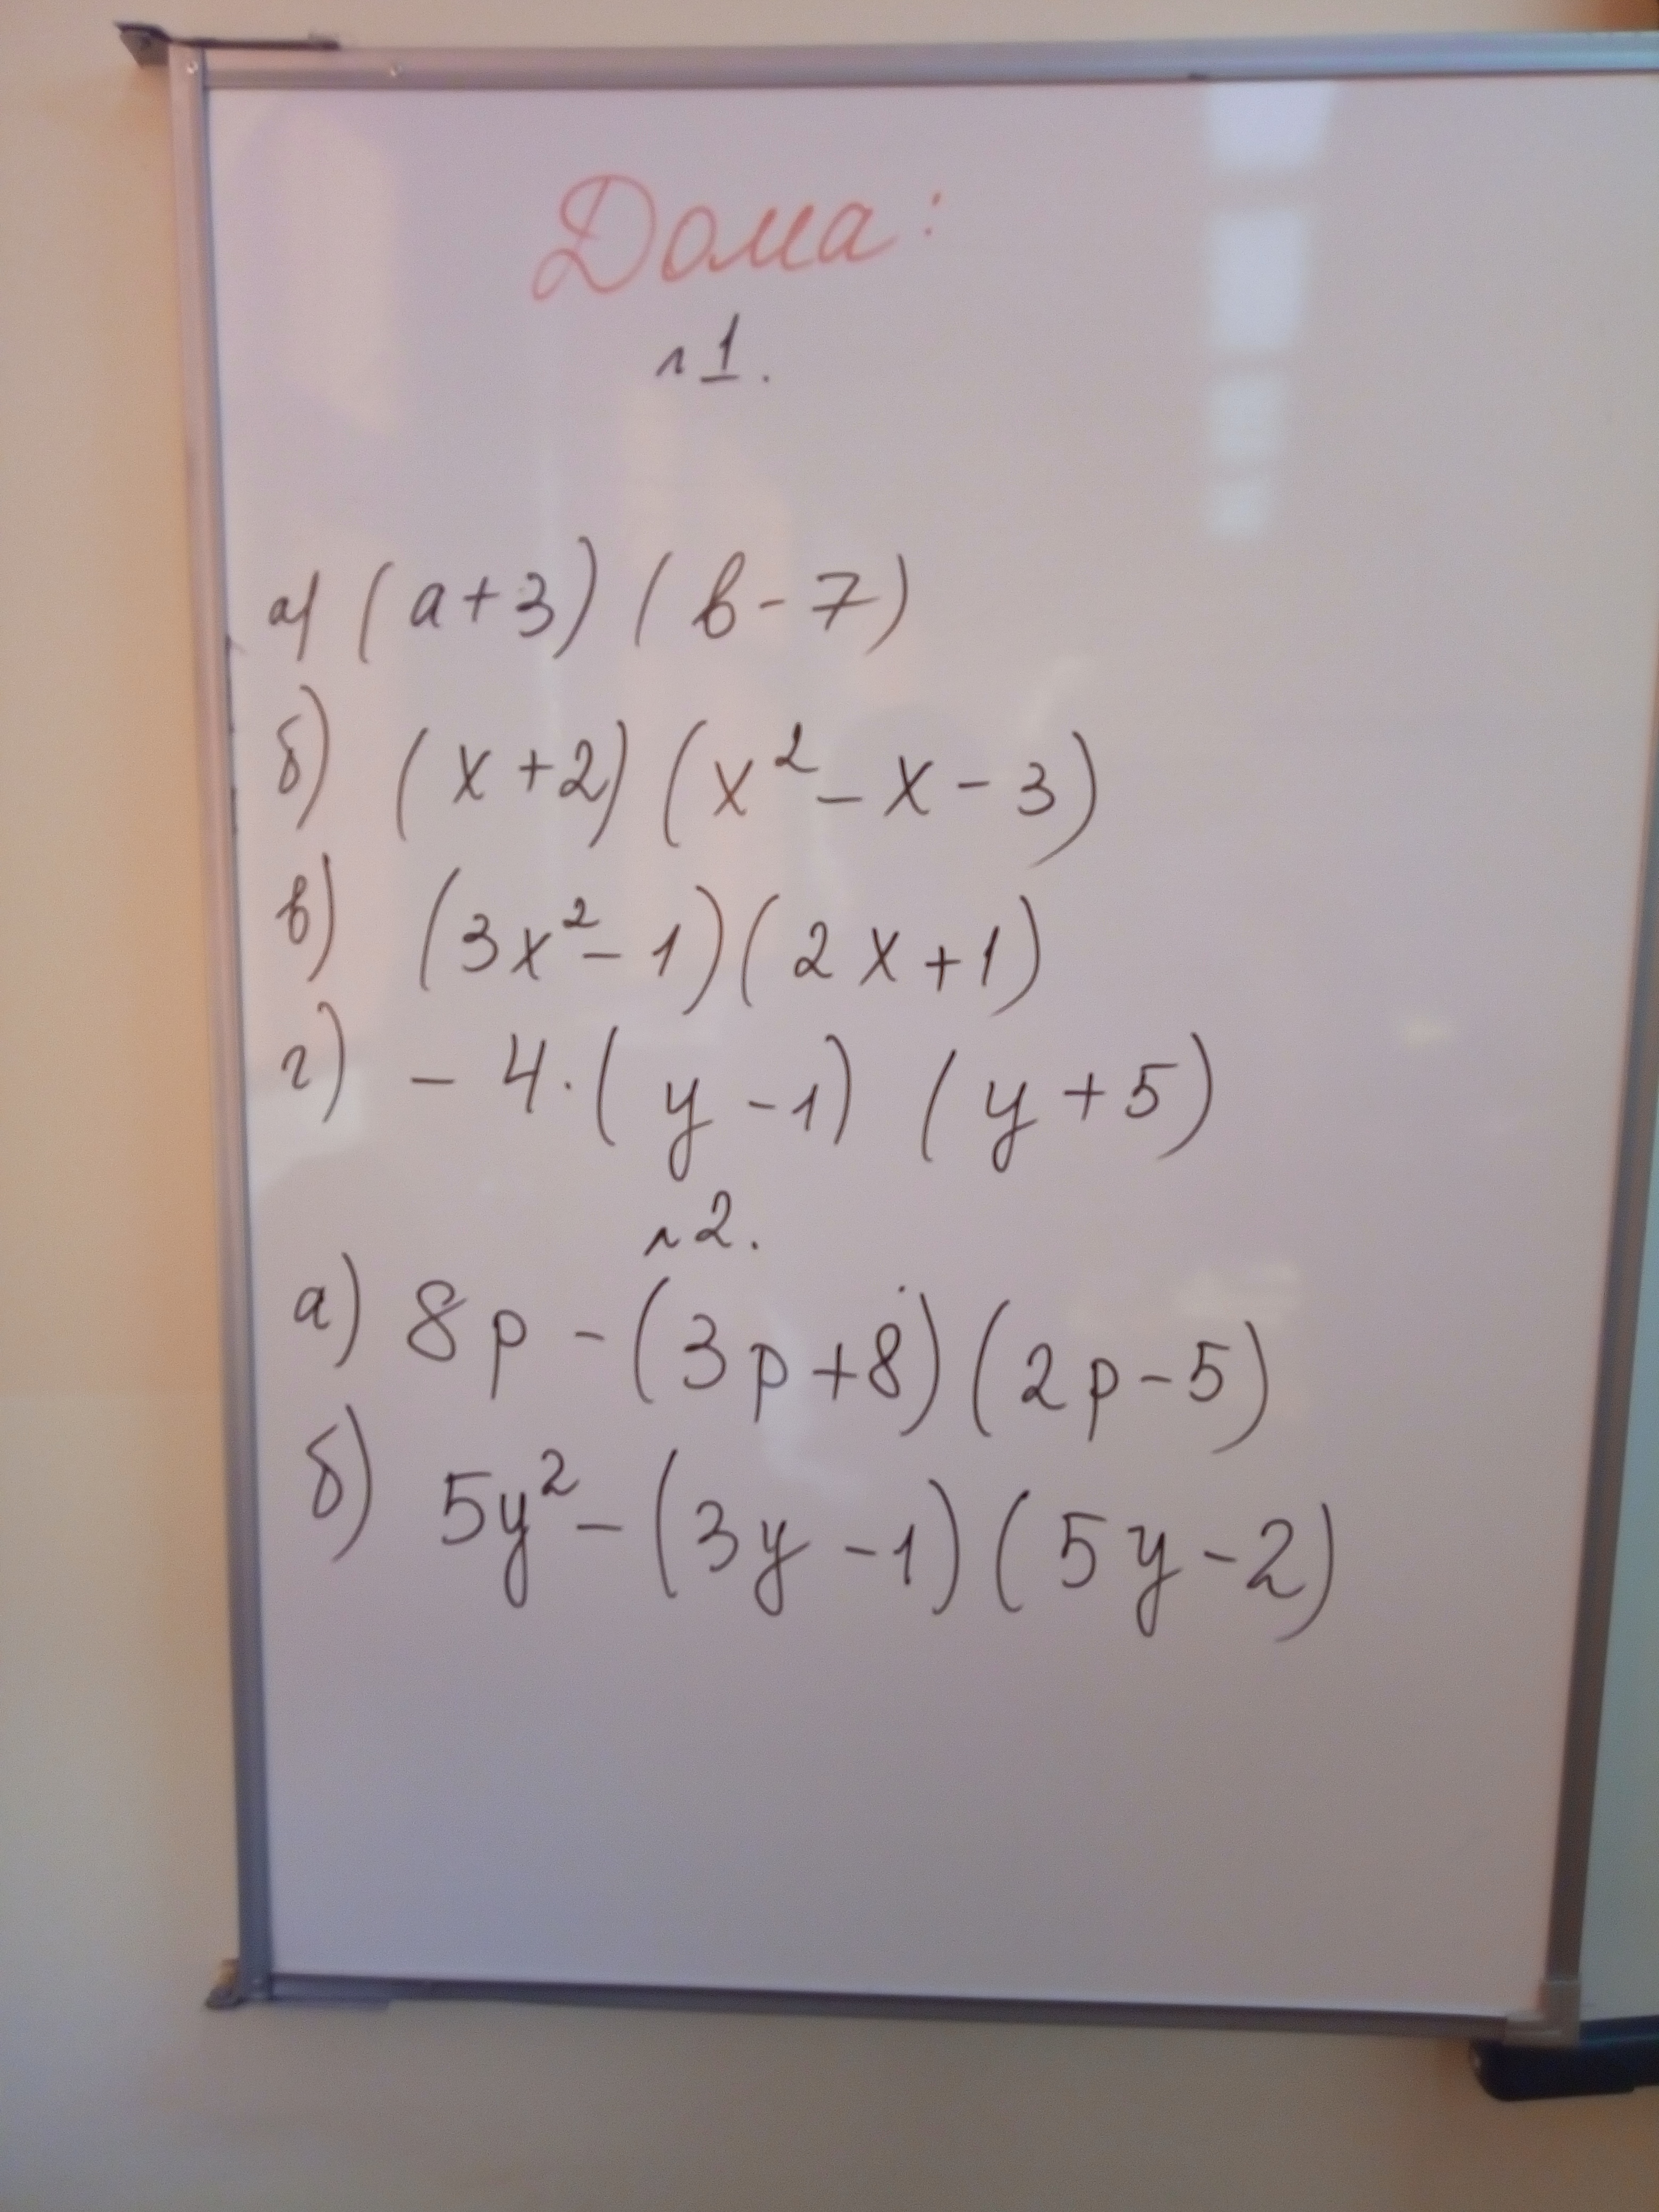 Дома:
№1.
а) (a+3)(в-7)
б) (x+2)(x²-x-3)
в) (3x²-1)(2x+1)
г) -4·(y-1)(y+5)
№2.
а) 8p-(3p+8)(2p-5)
б) 5y²-(3y-1)(5y-2)